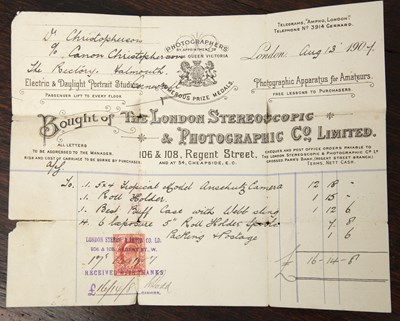 TELEGRAMS, "AMPHO, LONDON"
TELEPHONE No 3941 GERRARD.
Dr Christopherson
c/o Canon Christopherson
The Rectory, Falmouth
London, Aug 13 1907.
PHOTOGRAPHERS
BY APPOINTMENT
QUEEN VICTORIA
NUMEROUS PRIZE MEDALS.
Electric & Daylight Portrait Studio
PASSENGER LIFT TO EVERY FLOOR
Photographic Apparatus for Amateurs.
FREE LESSONS TO PURCHASERS.
Bought of THE LONDON STEREOSCOPIC
& PHOTOGRAPHIC Co. LIMITED.
ALL LETTERS
TO BE ADDRESSED TO THE MANAGER.
RISK AND COST OF CARRIAGE TO BE BORNE BY PURCHASER.
106 & 108, REGENT STREET,
AND AT 54, CHEAPSIDE, E.C.
CHEQUES AND POST OFFICE ORDERS PAYABLE TO
THE LONDON STEREOSCOPIC & PHOTOGRAPHIC Co Ld
TERMS, NETT CASH.
To 1 5x4 Tropical Model Anschutz Camera 12 18
1 Roll Holder 1 15
1 Best Buff Case with Webb sling 1 12 6
4 6 Exposure 5" Roll Holder Spools 7 8
Packing & Postage 1 6
£ 16-14-8
LONDON STEREOSCOPIC Co. LD.
106 & 108 REGENT ST. W.
RECEIVED WITH THANKS
£